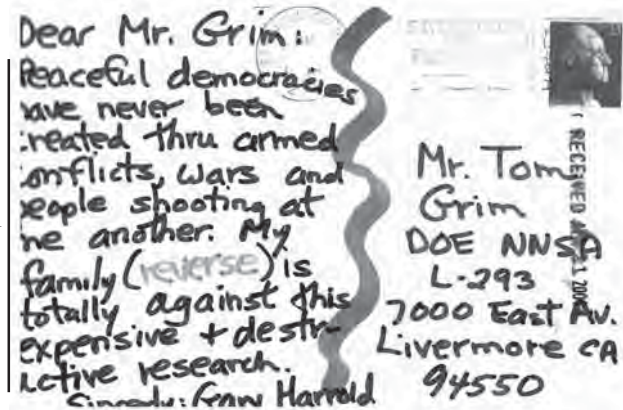 Dear Mr. Grim:
Peaceful democracies
have never been
created thru armed
conflicts, wars and
people shooting at
one another. My
family (reverse) is
totally against this
expensive + destr-
uctive research.
Sincerely: Gary Harrold
Mr. Tom
Grim
DOE NNSA
L-293
7000 East Av.
Livermore CA
94550
RECEIVED